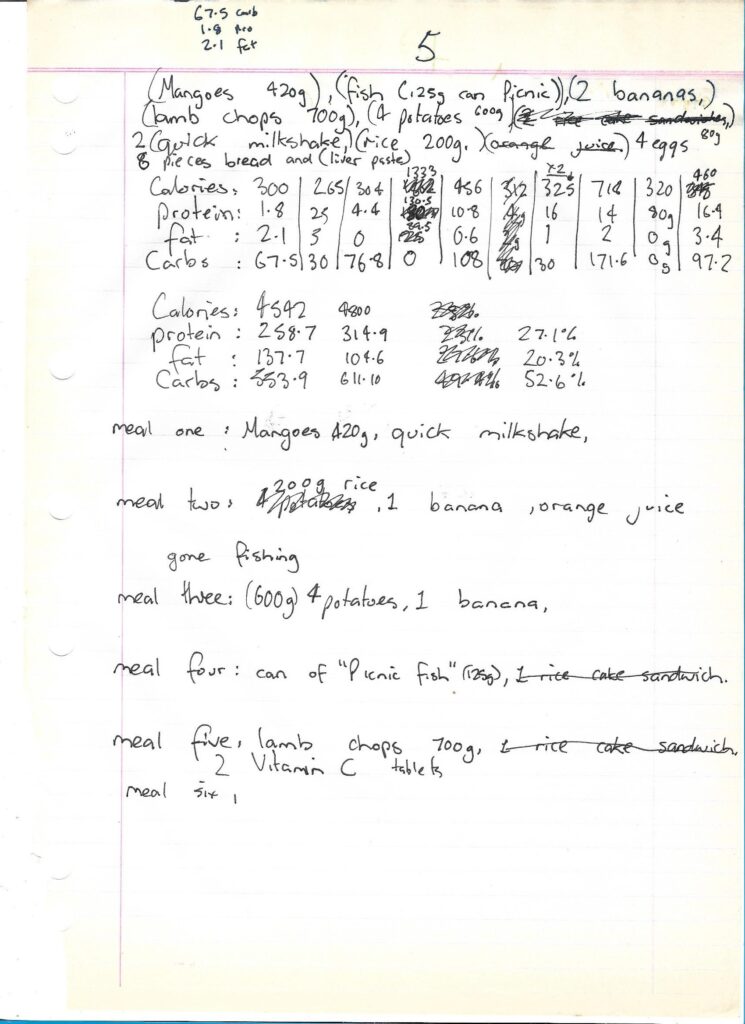 67.5 carb
1.8 pro
2.1 fat
5
(Mangoes 420g), (fish (125g can Picnic)), (2 bananas,)
(lamb chops 700g), (4 potatoes 600g) (2 rice cake sandwiches,)
2 (quick milkshake,) (rice 200g.) (orange juice) 4 eggs 80g
8 pieces bread and (liver paste)
1333 x2 460
Calories: 300 | 265 | 304 | 456 | 312 | 325 | 718 | 320
130.5
protein: 1.8 | 25 | 4.4 | 10.8 | 16 | 14 | 80g | 16.4
89.5
fat : 2.1 | 5 | 0 | 25 | 0.6 | 1 | 2 | 0g | 3.4
Carbs : 67.5 | 30 | 76.8 | 0 | 108 | 30 | 171.6 | 0g | 97.2
Calories: 4542 4800
protein : 258.7 314.9 27.1%
fat : 137.7 104.6 20.3%
Carbs : 553.9 611.10 52.6%
meal one : Mangoes 420g, quick milkshake,
200g rice
meal two: 4 potatoes, 1 banana, orange juice
gone fishing
meal three: (600g) 4 potatoes, 1 banana,
meal four: can of "Picnic fish" (125g), 1 rice cake sandwich.
meal five, lamb chops 700g, 1 rice cake sandwich.
2 Vitamin C tablets
meal six,